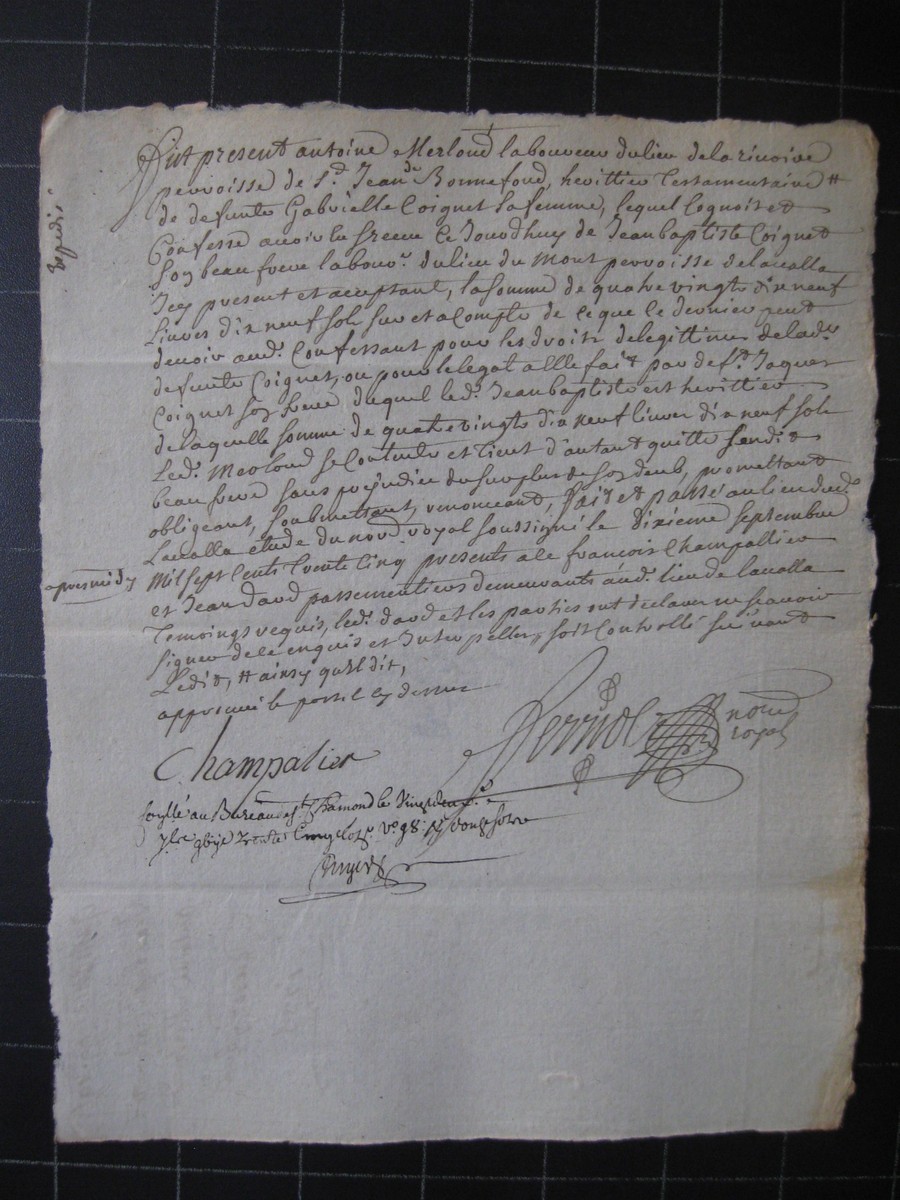 Expedié
Fut present antoine Merloud laboureur du lieu de la rivoire
perroisse de St Jean de Bonnefond, herittier Testamentaire #
de defunte Gabrielle Coignet sa femme, lequel Cognoit et
Confesse avoir eu Et receu Ce Jourdhuy de Jean baptiste Coignet
Soy beau frere labour. du lieu du Mont perroisse de lavalla
Icy present et acceptant, la somme de quatre vingts dix neuf
Livres dix neuf sols sur et a Compte de ce que ce dernier peut
devoir aud. Confessant pour les droits de legittime de lad.
defunte Coignet, ou pour le legat a Elle fait par deft Jaques
Coignet Soy frere duquel led. Jean baptiste est herittier
de laquelle somme de quatre vingts dix neuf livres dix neuf sols
Led. Merloud se Contente et tient d'autant quitte Sendit
beau frere sans prejudice du surplus de Soy deub, promettant
obligeant, soubmettant, renonceant, fait et passé au lieu dud.
Lavalla etude du nore royal soussigné le dixieme septembre
apres midy
Mil sept Cents trente Cinq presents a Ce francois Champallier
et Jean davd passementiers demeurants aud. lieu de lavalla
temoings requis, led. davd et les parties ont declaré ne scavoir
signer de ce enquis et Interpellés, soit Controllé suivant
L'edit, # ainsy qu'il dit,
approuvé le postil cy dessus
Champalier
nore
royal
au Bureau de St Chamond le
trente Cinq